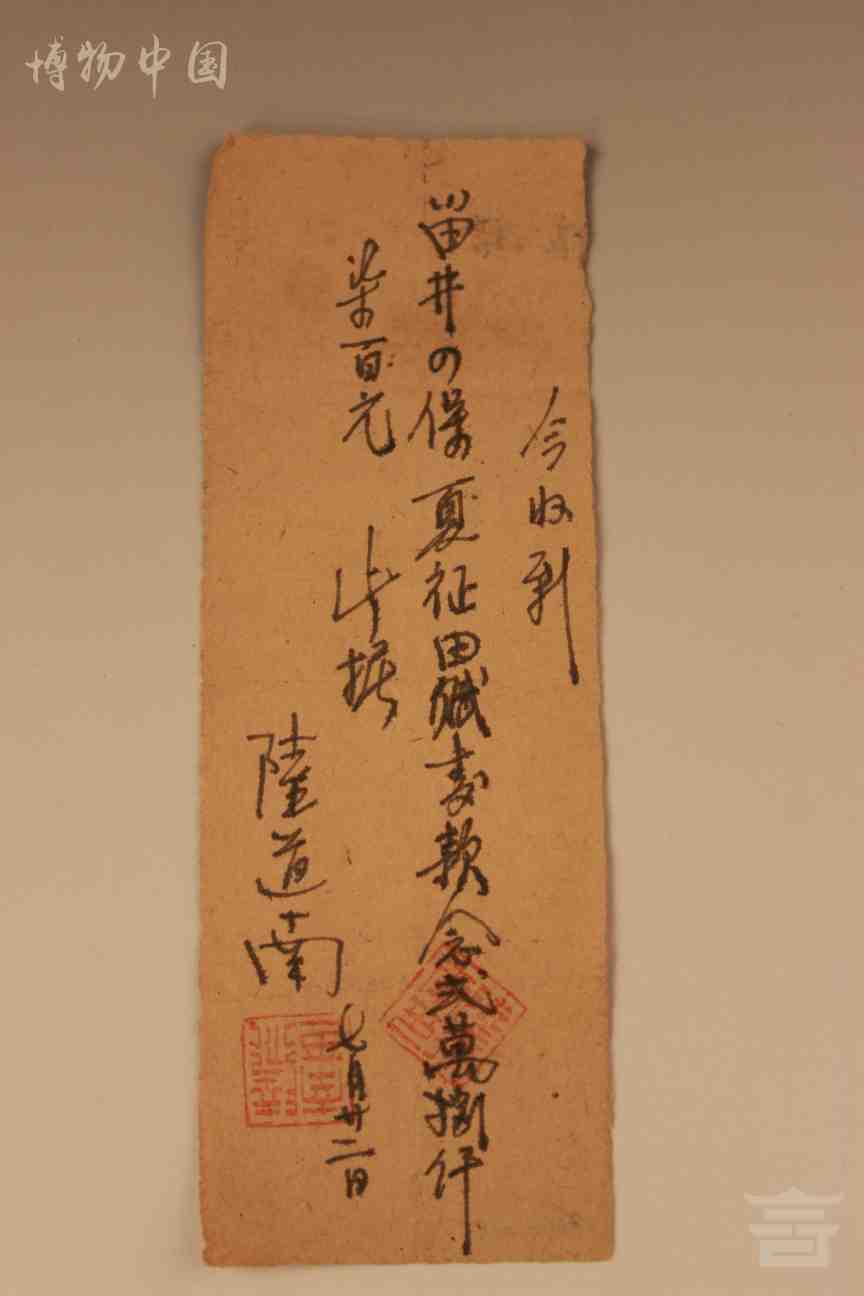 博物中国
今收到
甾井の保夏征田赋麦款念弍萬捌仟
柒百元 此据
陸道南
七月廿二日